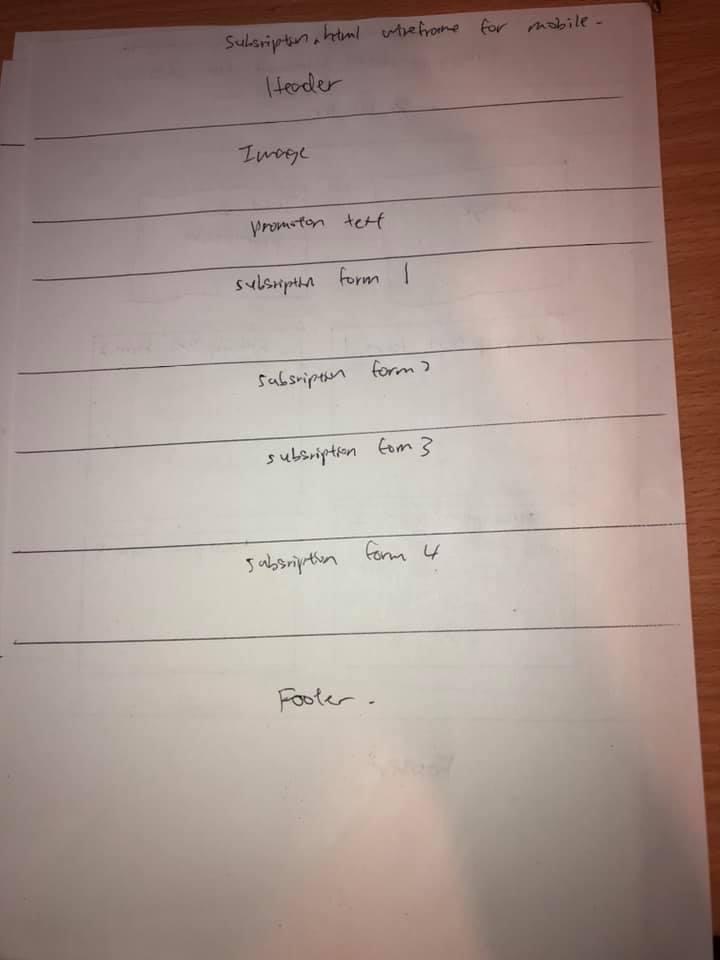 Subsription.html wireframe for mobile.
Header
Image
promotion text
subsription form 1
subsription form 2
subsription fom 3
subsription form 4
Footer.